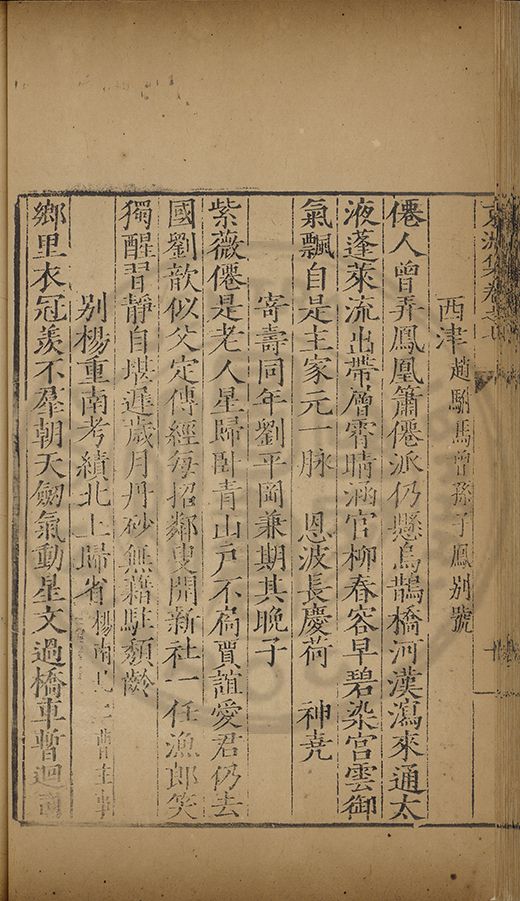 集卷之
西津趙駙馬曾孫子鳳別號
僊人曾弄鳳凰簫僊派仍懸烏鵲橋河漢瀉來通太
液蓬萊流出帶層霄晴涵官柳春容早碧染宮雲御
氣飄自是主家元一脉 恩波長慶荷 神堯
寄壽同年劉平岡兼期其晚子
紫薇僊是老人星歸卧青山戸不扃賈誼愛君仍去
國劉歆似父定傳經每招鄰叟開新社一任漁郎笑
獨醒習靜自堪遲歲月丹砂無藉駐頽齡
別楊重南考績北上歸省楊南曹主事
鄉里衣冠羨不羣朝天劒氣動星文過橋車暫迴